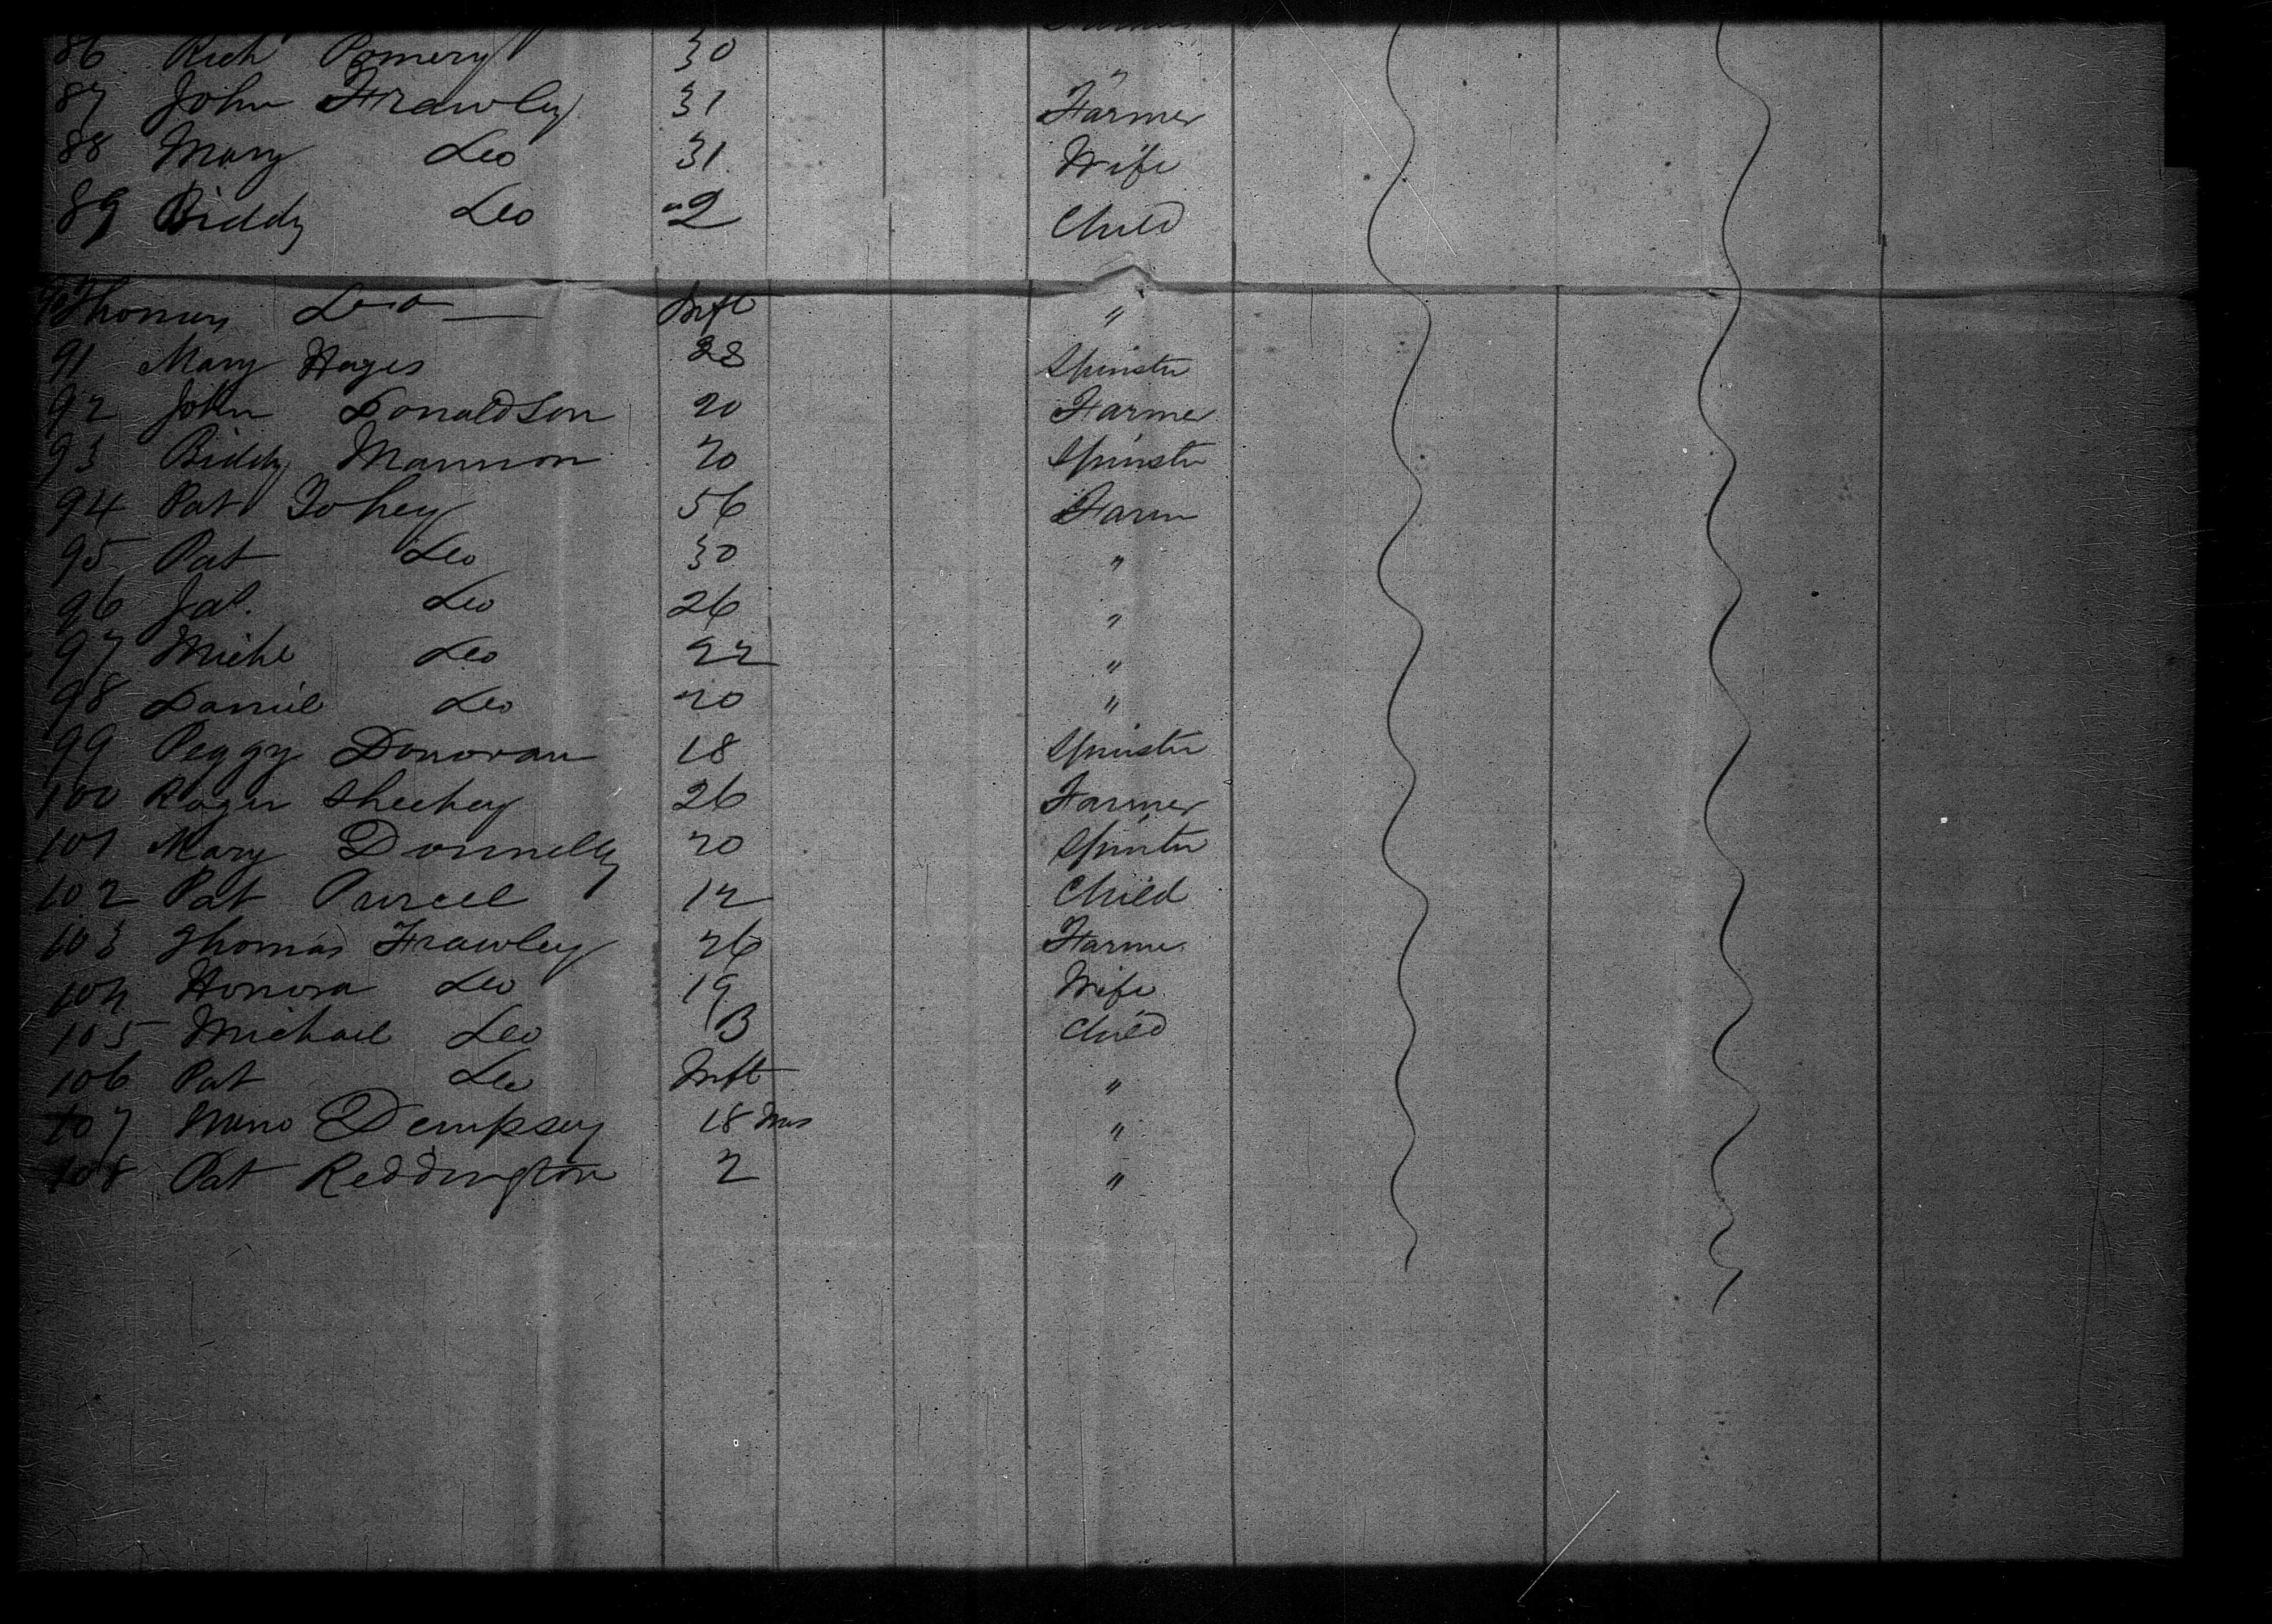 86 Rich Pomery 30 "
87 John Frawley 31 Farmer
88 Mary Do 31 Wife
89 Biddy Do 2 Child
90 Thomas Do Inft "
91 Mary Hayes Spinster
92 John Donaldson 20 Farmer
93 Biddy Mannion 20 Spinster
94 Pat Fohey 56 Farm
95 Pat Do 30 "
96 Jas. Do 26 "
97 Michl Do 22 "
98 Daniel Do 20 "
99 Peggy Donovan 18 Spinster
100 Roger Sheehey 26 Farmer
101 Mary Donnelly 20 Spinster
102 Pat Purcel 12 Child
103 Thomas Frawley 26 Farmer
104 Honora Do 19 Wife
105 Michael Do 3 Child
106 Pat Do Inft "
107 Dempsey 18 Mos "
108 Pat Reddington 2 "